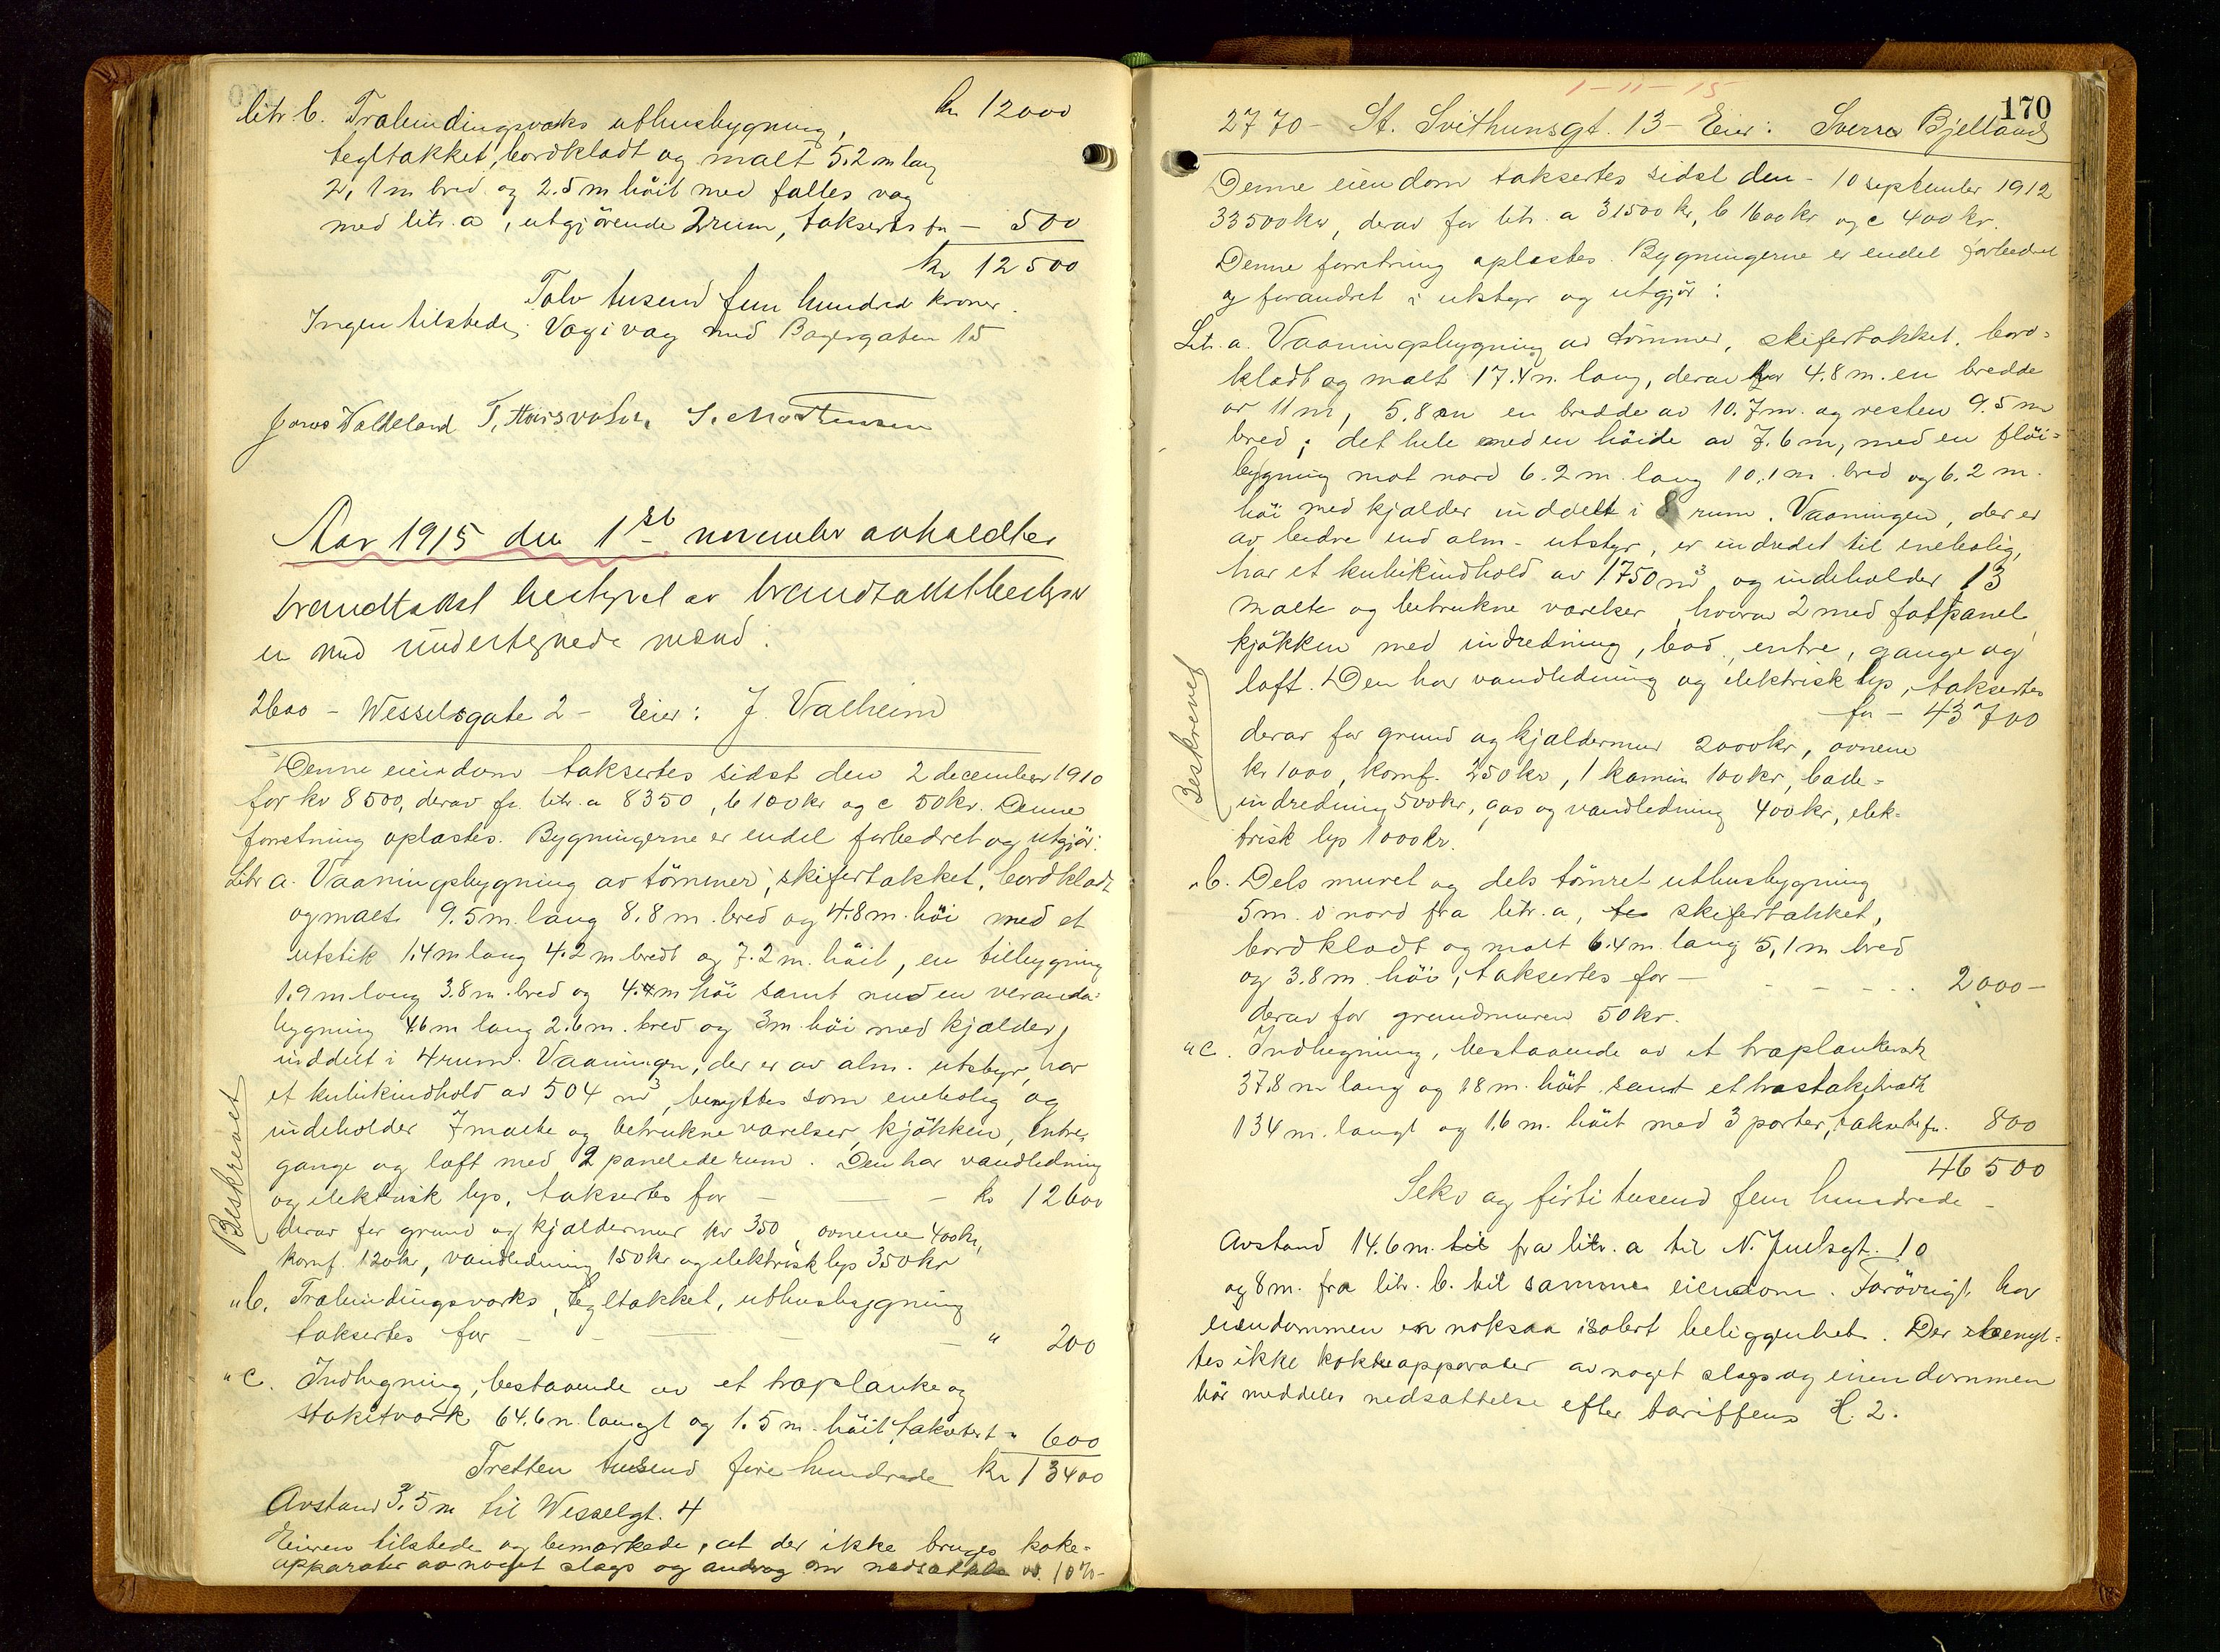 kr 12000
litr b. Træbindingsværks uthusbygning,
tegltækket, bordklædt og malt 5.2 m lang
2,1 m bred og 2.5 m höit med fælles væg
med litr. a, utgjörende 2 rum, taksertes for — 500
kr 12500
Tolv tusend fem hundred kroner.
Ingen tilstede. Væg i væg med Bagergaten 15
Jonas Valdeland
Aar 1915 den 1st november avholdtes
brandtakst bestyret av brandtakstbestyr
er med undertegnede mænd:
2600 – Wesselsgate 2 – Eier: J. Valheim
Denne eiendom taksertes sidst den 2 december 1910
for kr 8500, derav fr. litr. a 8350, b 100 kr og c 50 kr. Denne
forretning oplæstes. Bygningerne er endel forbedret og utgjör:
Litr a. Vaaningsbygning av tömmer, skifertækket, bordklædt
og malt 9.5 m. lang 8.8 m. bred og 4.8 m. höi med et
utstik 1.4 m lang 4.2 m bredt og 7.2 m. höit, en tilbygning
1.9 m lang 3.8 m. bred og 4.4 m höi samt med en veranda-
bygning 4.6 m lang 2.6 m. bred og 3 m. höi med kjælder,
inddelt i 4 rum. Vaaningen, der er av alm. utstyr, har
et kubikindhold av 504 m³, benyttes som enebolig og
indeholder 7 malte og betrukne værelser, kjökken, entre,
gange og loft med 2 panelede rum. Den har vandledning
og elektrisk lys, taksertes for — — — kr 12600
Beskrevet
derav for grund og kjældermur kr 350, ovnene 400 kr,
komf. 120 kr, vandledning 150 kr og elektrisk lys 350 kr
" b. Træbindingsværks, tegltækket, uthusbygning
taksertes for — — — — " 200
" c. Indhegning, bestaaende av et træplanke og
stakitværk 64.6 m. langt og 1.5 m. höit, taksert " 600
Tretten tusend fire hundrede kr 13400
Avstand 3.5 m til Wesselgt. 4
Eieren tilstede og bemærkede, at der ikke bruges koke-
apparater av noget slags og androg om nedsættelse av 10%-
1-11-15
170
2770 – St. Svithunsgt. 13 – Eier: Sverre Bjelland
Denne eiendom taksertes sidst den – 10 september 1912
33500 kr, derav for litr. a 31500 kr, b 1600 kr og c 400 kr.
Denne forretning oplæstes. Bygningerne er endel forbedret
og forandret i utstyr og utgjör:
Litr. a. Vaaningsbygning av tömmer, skifertækket, bord-
klædt og malt 17.4 m. lang, derav for 4.8 m. en bredde
av 11 m, 5.8 m en bredde av 10.7 m. og resten 9.5 m
bred; det hele med en höide av 7.6 m, med en flöi-
bygning mot nord 6.2 m. lang 10.1 m. bred og 6.2 m.
höi med kjælder inddelt i 8 rum. Vaaningen, der er
av bedre end alm. utstyr, er indredet til enebolig,
har et kubikindhold av 1750 m³, og indeholder 13
malte og betrukne værelser, hvorav 2 med fatpanel,
kjökken med indredning, bad, entre, gange og
loft. Den har vandledning og elektrisk lys, taksertes
for – 43700
Beskrevet
derav for grund og kjældermur 2000 kr, ovnene
kr 1000, komf. 250 kr, 1 kamin 100 kr, bade-
indredning 500 kr, gas og vandledning 400 kr, elek-
trisk lys 1000 kr.
" b. Dels muret og dels tömret uthusbygning
5 m. i nord fra litr. a, te skifertækket,
bordklædt og malt 6.4 m. lang 5,1 m bred
og 3.8 m. höi, taksertes for — — — 2000 —
derav for grundmuren 50 kr.
" c. Indhegning, bestaaende av et træplankeverk
37.8 m lang og 1.8 m. höit samt et træstakitværk
134 m. langt og 1.6 m. höit med 3 porter, taksertes for. 800
46500
Seks og firti tusend fem hundrede —
Avstand 14.6 m. til fra litr. a til N. Juelsgt. 10
og 8 m. fra litr. b. til samme eiendom. Forövrigt har
eiendommen en noksaa isolert beliggenhet. Der benyt-
tes ikke kokeapparater av noget slags og eiendommen
bör meddeles nedsættelse efter tariffens H. 2.